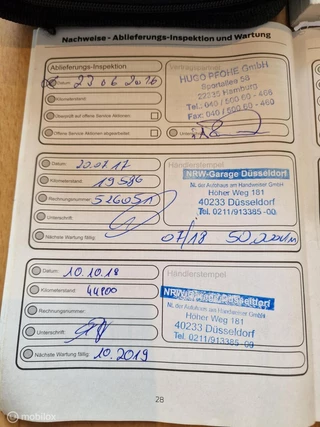 Nachweise - Ablieferungs-Inspektion und Wartung
Ablieferungs-Inspektion
Vertragspartner
Datum: 23 06 2016
HUGO PFOHE GmbH
Sportallee 59
22335 Hamburg
Tel.: 040 / 500 60 - 406
Fax: 040 / 500 60 - 460
Kilometerstand:
Überprüft auf offene Service Aktionen
Offene Service Aktionen abgearbeitet
Datum: 20.07.17
Händlerstempel
Kilometerstand: 19586
NRW-Garage Düsseldorf
NL der Autohaus am Handweiser GmbH
Höher Weg 181
40233 Düsseldorf
Tel. 0211/913385-00
Rechnungsnummer:
Unterschrift:
Nächste Wartung fällig: 07/18
Datum: 10.10.18
Händlerstempel
Kilometerstand: 44900
NRW-Garage Düsseldorf
NL der Autohaus am Handweiser GmbH
Höher Weg 181
40233 Düsseldorf
Tel. 0211/913385-00
Rechnungsnummer:
Unterschrift:
Nächste Wartung fällig: 10.2019
28
© mobilox